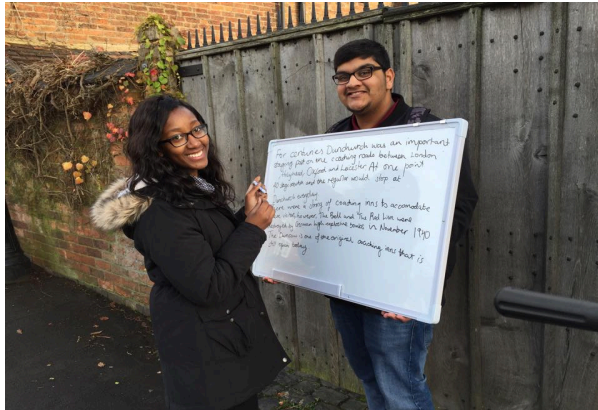 For centuries Dunchurch was an important
staging post on the coaching roads between London
Holyhead, Oxford and Leicester. At one point
40 stage coaches and the regular would stop at
Dunchurch everyday.
There were a string of coaching inns to accomodate
however, The Bell and The Red Lion were
destroyed by German high explosive bombs in November 1940
The Dun Cow is one of the original coaching inns that is
still open today.